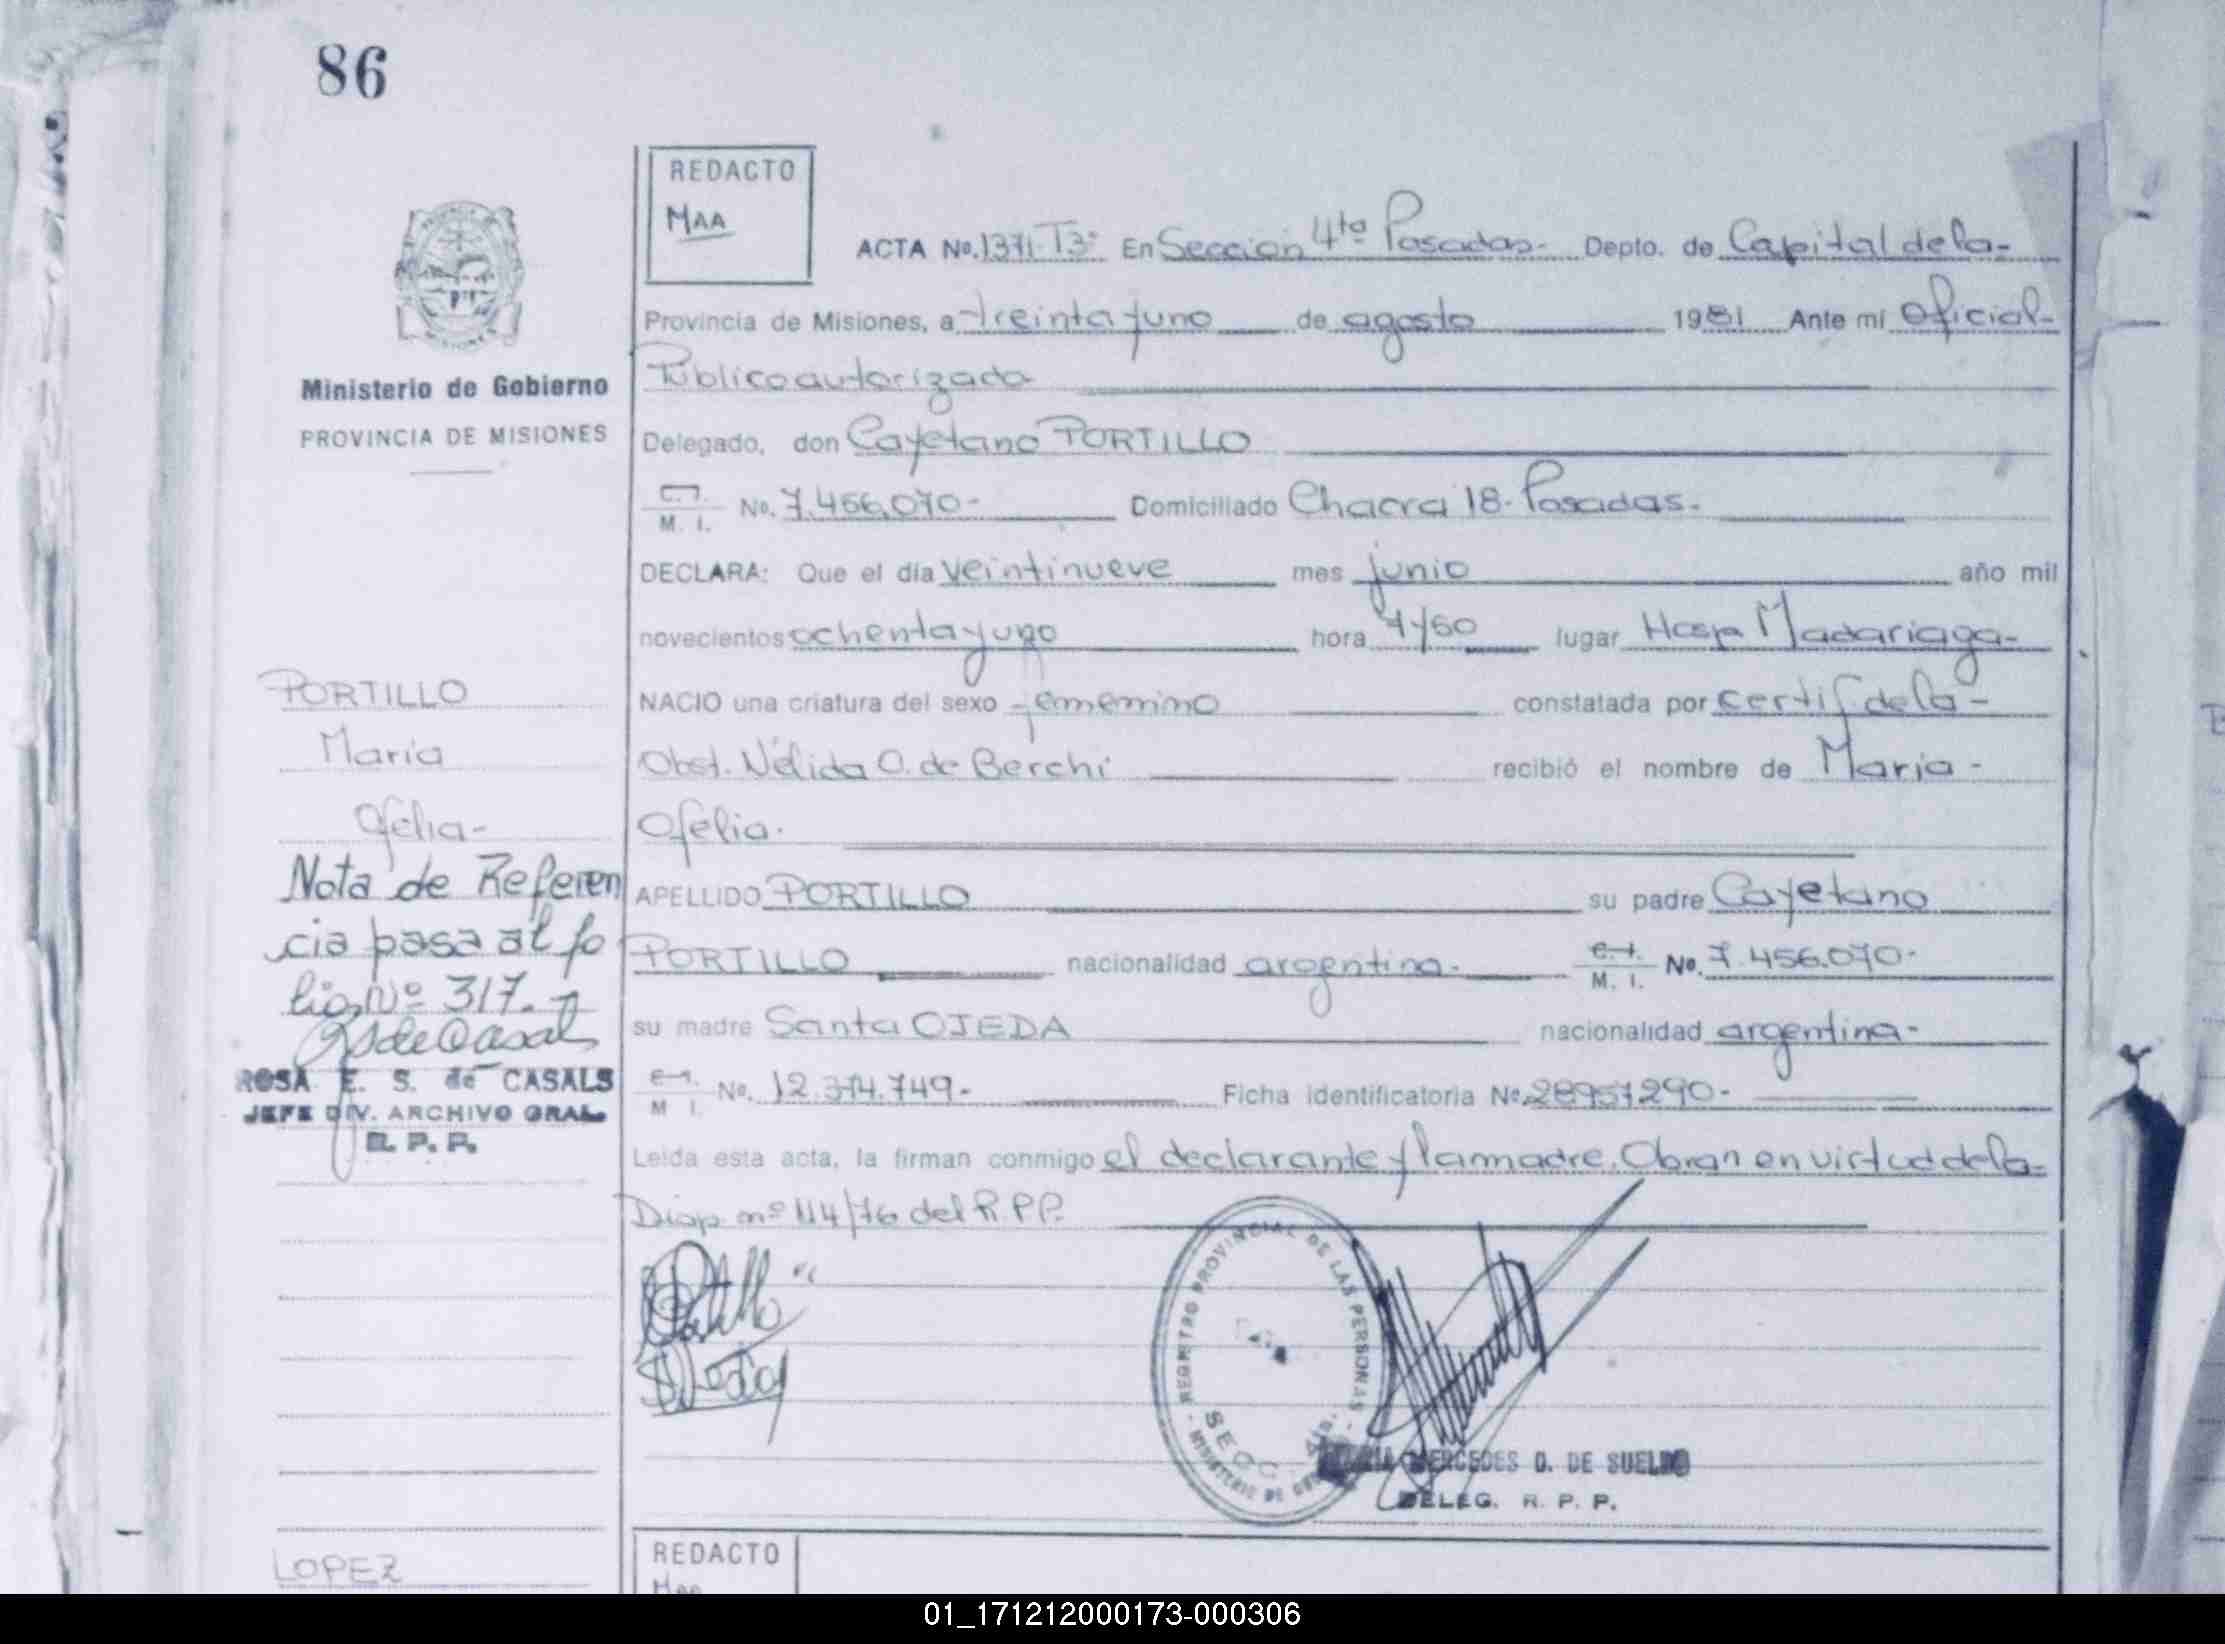 86
REDACTO
MAA
ACTA No. 1371-T3º En Sección 4ta Posadas- Depto. de Capital de la-
Provincia de Misiones, a treinta y uno de agosto 1981 Ante mí Oficial-
Público autorizado
Ministerio de Gobierno
PROVINCIA DE MISIONES
Delegado, don Cayetano PORTILLO
C.I. M. I. No. 7.456.070- Domiciliado Chacra 18- Posadas-
DECLARA: Que el día veintinueve mes junio año mil
novecientos ochenta y uno hora lugar Hosp Madariaga-
NACIO una criatura del sexo femenino constatada por certif de la-
Obst. Nélida O. de Berchi recibió el nombre de María-
Ofelia-
APELLIDO PORTILLO su padre Cayetano
PORTILLO nacionalidad argentina- C.I. M. I. No. 7.456.070-
su madre Santa OJEDA nacionalidad argentina-
C.I. M I. No. 12.374.749- Ficha identificatoria No 28957290-
Leída esta acta, la firman conmigo el declarante y la madre. Obran en virtud de la-
Disp nº 114/76 del R.P.P.
PORTILLO
María
Ofelia-
Nota de Referen
cia pasa al fo
lio Nº 317.-
ROSA E. S. de CASALS
JEFE DIV. ARCHIVO GRAL.
R. P. P.
REGISTRO PROVINCIAL DE LAS PERSONAS
MINISTERIO DE
SECC
MERCEDES O. DE SUELDO
DELEG. R. P. P.
LOPEZ
REDACTO
Maa
01_171212000173-000306